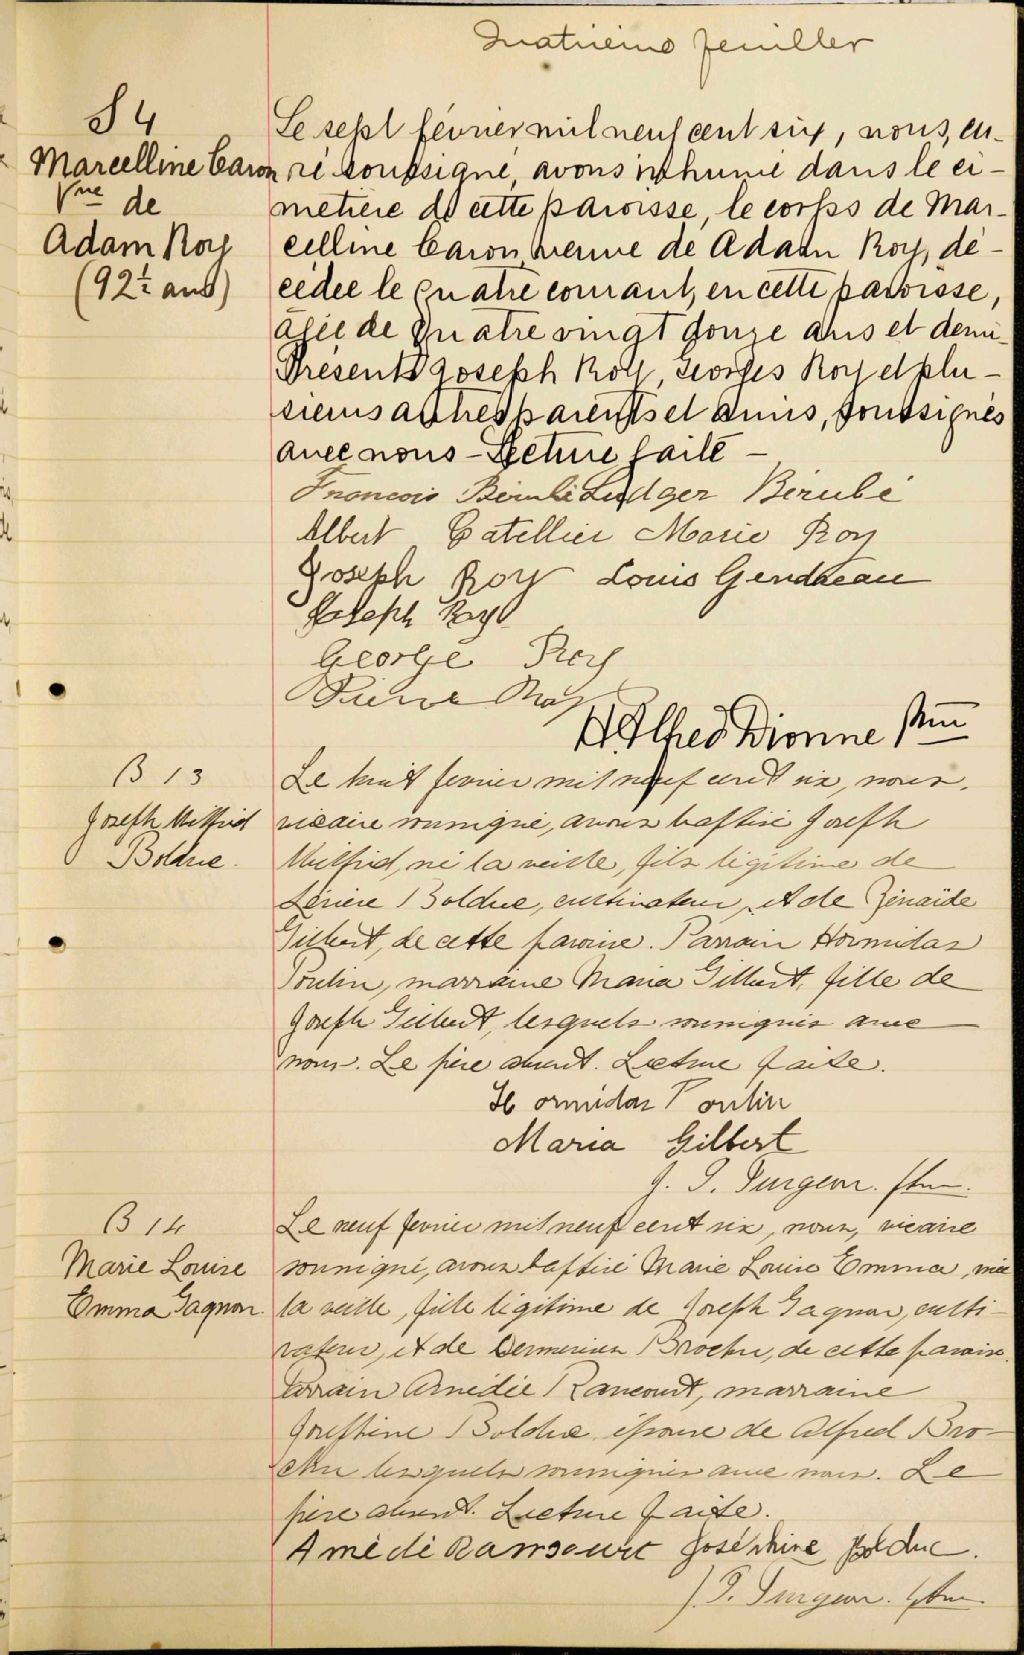 Quatrième feuillet
S 4
Marcelline Caron
Vve de
Adam Roy
(92½ ans)
Le sept février mil neuf cent six, nous, cu-
ré soussigné, avons inhumé dans le ci-
metière de cette paroisse, le corps de Mar-
celline Caron, veuve de Adam Roy, dé-
cédée le quatre courant, en cette paroisse,
âgée de quatre vingt douze ans et demi.
Présents Joseph Roy, Georges Roy et plu-
sieurs autres parents et amis, soussignés
avec nous - Lecture faite -
Francois Bérubé Ludger Bérubé
Albert Catellier Marie Roy
Joseph Roy Louis Gendreau
Joseph Roy
George Roy
Pierre Roy
H. Alfred Dionne Ptre
B 13
Joseph Wilfrid
Bolduc.
Le huit fevrier mil neuf cent six, nous,
vicaire soussigné, avons baptisé Joseph
Wilfrid, né la veille, fils légitime de
Bolduc, cultivateur, et de Zénaïde
Gilbert, de cette paroisse. Parrain Hormidas
Poulin, marraine Maria Gilbert, fille de
Joseph Gilbert, lesquels soussignés avec
nous. Le père absent. Lecture faite.
Hormidas Poulin
Maria Gilbert
J. P. Turgeon. ptre.
B 14
Marie Louise
Emma Gagnon.
Le neuf fevrier mil neuf cent six, nous, vicaire
soussigné, avons baptisé Marie Louise Emma, née
la veille, fille légitime de Joseph Gagnon, culti-
vateur, et de Brochu, de cette paroisse.
Parrain Amédée Rancourt, marraine
Josephine Bolduc épouse de Alfred Bro-
chu lesquels soussignés avec nous. Le
père absent. Lecture faite.
Amédé Rancourt Joséphine Bolduc.
J. P. Turgeon. ptre.